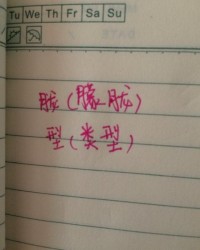 Tu We Th Fr Sa Su
胧(朦胧)
型(类型)